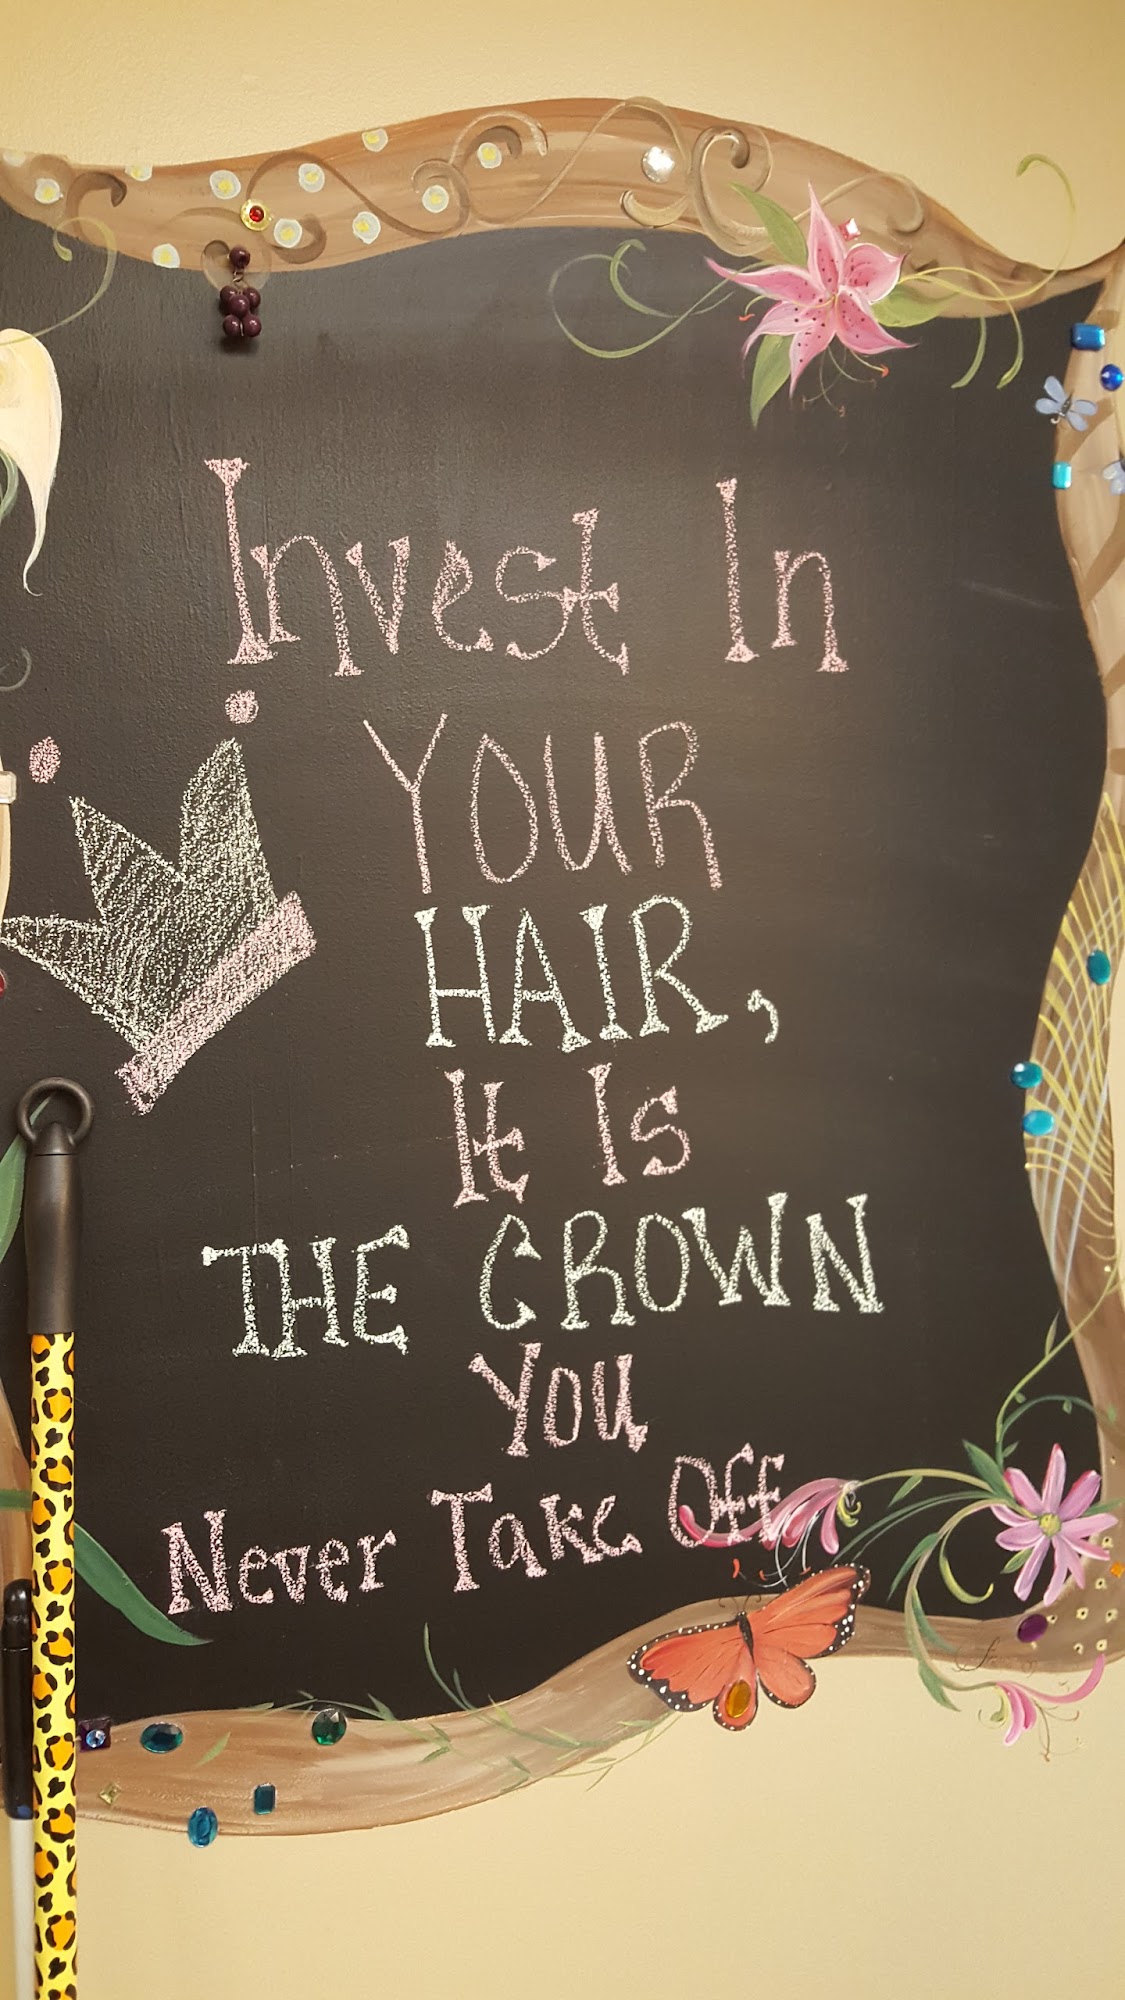 Invest In
YOUR
HAIR,
It Is
THE CROWN
You
Never Take Off